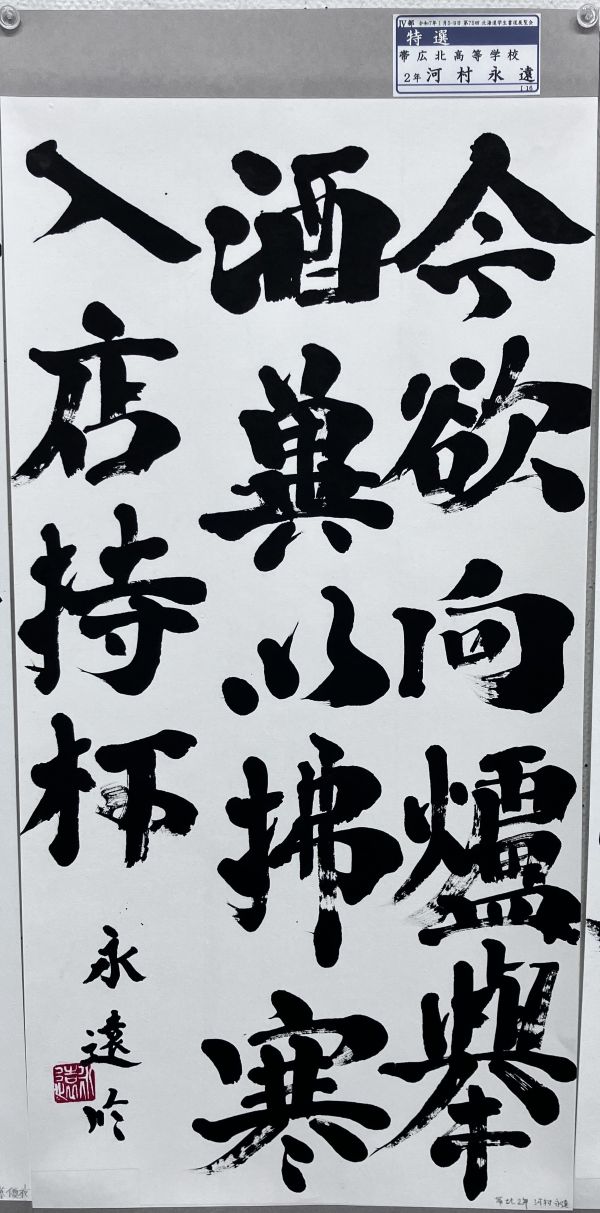 Ⅳ部 令和7年1月5-9日 第75回 北海道学生書道展覧会
特選
帯広北高等学校
2年 河村永遠
116
今欲向爐擧
酒冀以拂寒
入店持杯
永遠吟
永遠
帯北2年 河村永遠